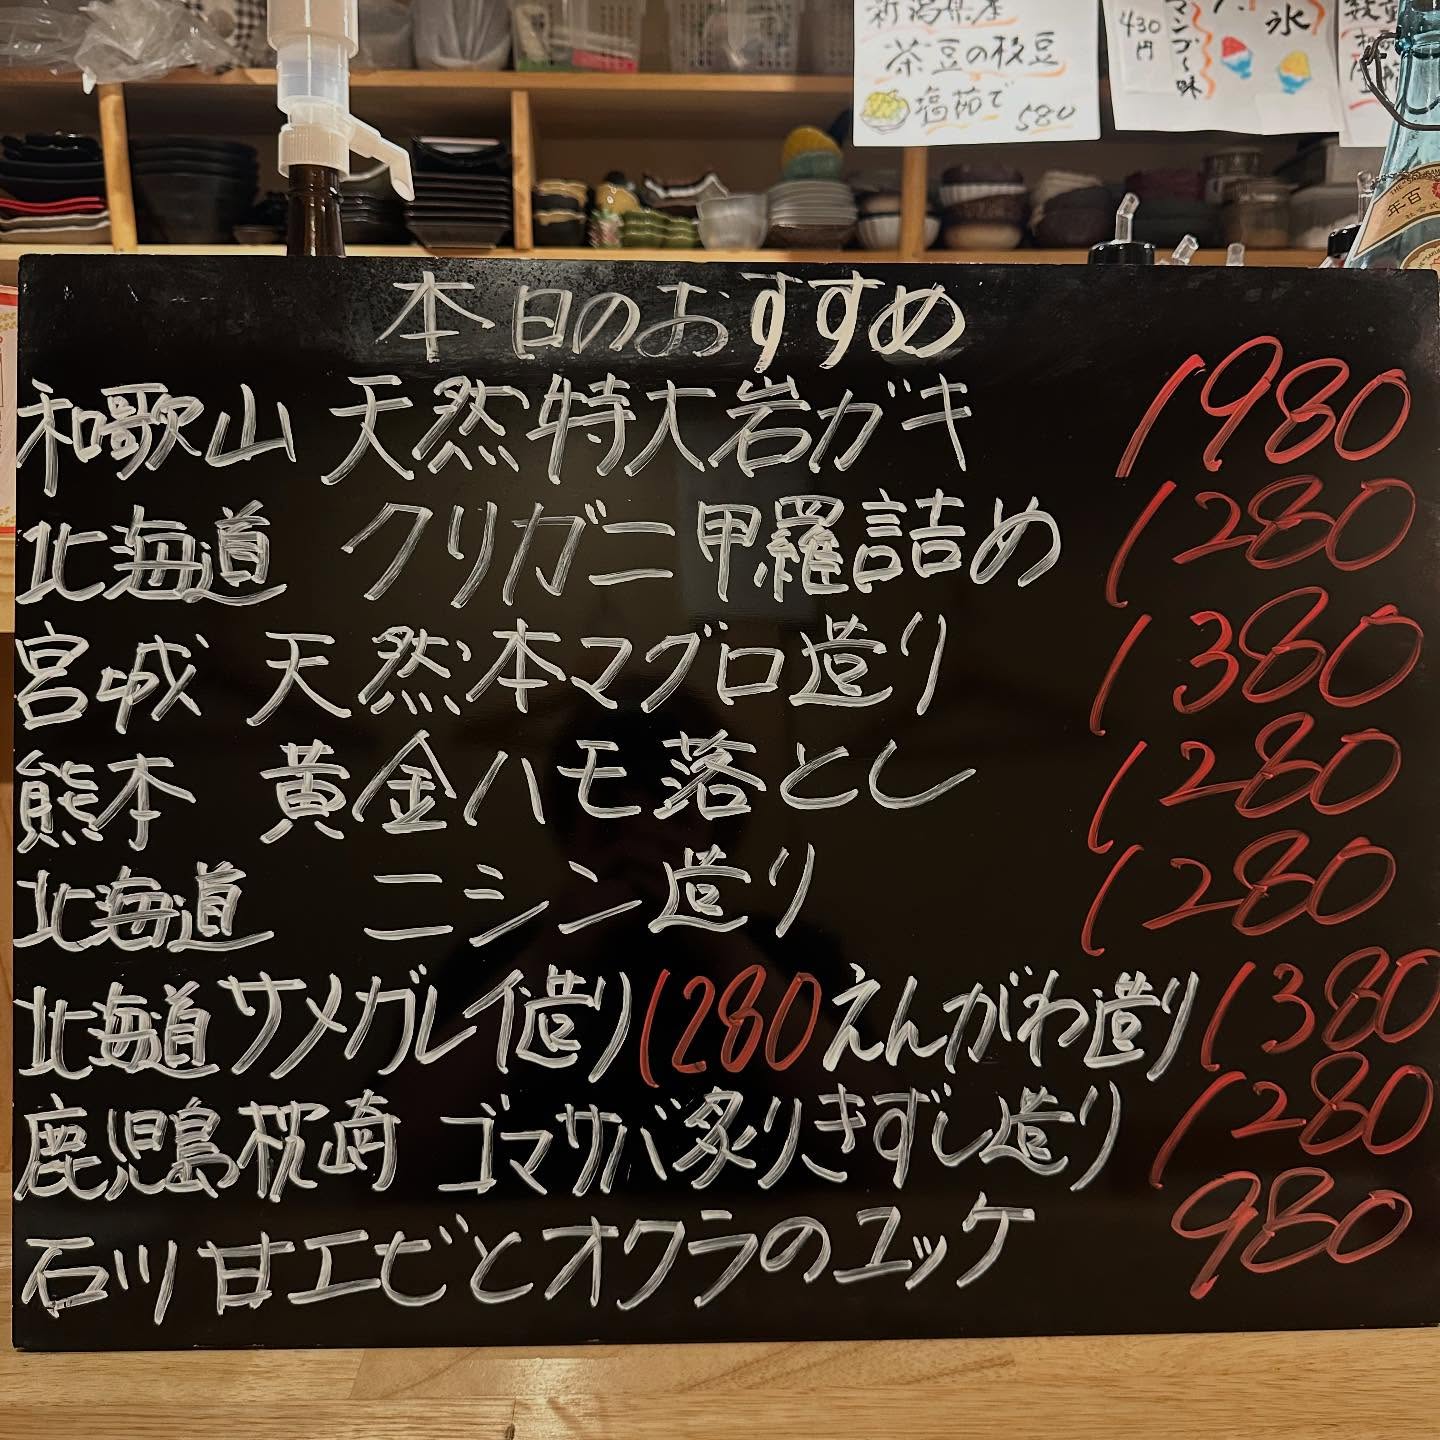 新潟県産
茶豆の枝豆
塩茹で 580
430円
マンゴー味
氷
百年
本日のおすすめ
和歌山 天然特大岩ガキ 1980
北海道 クリガニ甲羅詰め 1280
宮城 天然本マグロ造り 1380
熊本 黄金ハモ落とし 1280
北海道 ニシン造り 1280
北海道サメガレイ造り1280えんがわ造り1380
鹿児島枕崎 ゴマサバ炙りきずし造り 1280
石川甘エビとオクラのユッケ 980